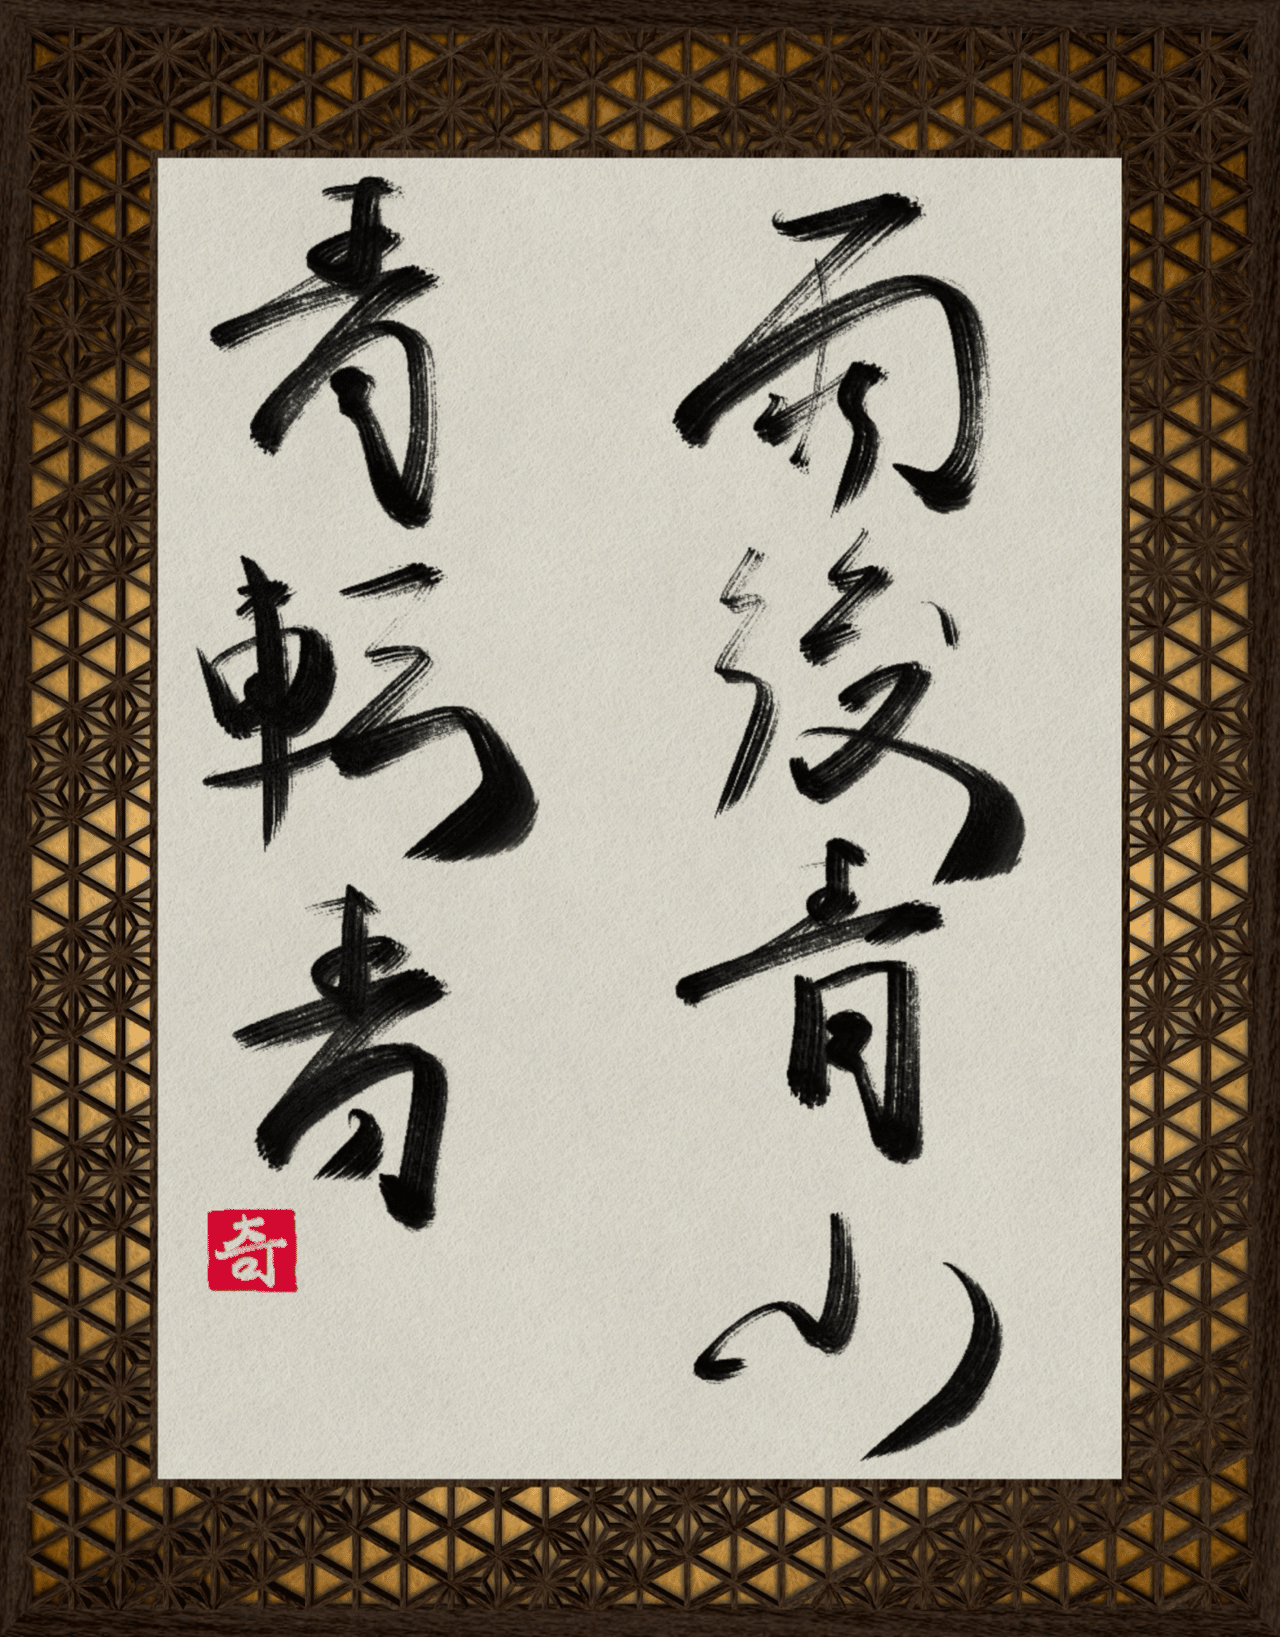 雨後青山
青轉青
奇